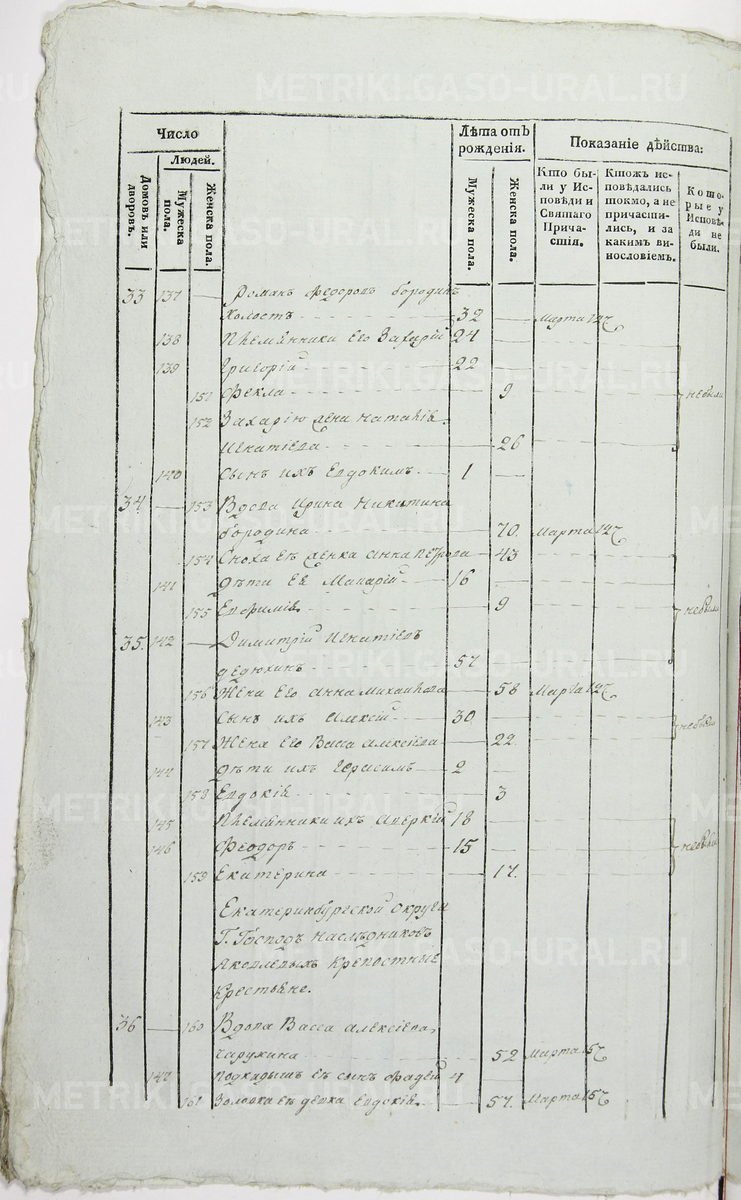 METRIKI.GASO-URAL.RU
Число
Лѣта отъ рожденія.
Показаніе дѣйства:
Людей.
Домовъ или дворовъ.
Мужеска пола.
Женска пола.
Мужеска пола.
Женска пола.
Кто были у Исповѣди и Святаго Причастія.
Ктожъ исповѣдались токмо, а не причастились, и за какимъ винословіемъ.
Которые у Исповѣди не были.
33 137 — Романъ Федоровъ Бородинъ
холостъ 32 — Марта 12
138 Племянники его Захарій 24 —
139 Григорій 22 —
151 Фекла — 9 небыли
152 Захарію жена Наталія
Игнатіева — 26
140 Сынъ ихъ Евдокимъ 1 —
34. — 153 Вдова Ирина Никитина
Бородина — 70. Марта 12
154 Сноха ея женка Анна Петрова — 43
141 Дѣти ея Макарій 16 —
155 Евфимія — 9 небыли
35. 142 — Димитрій Игнатіевъ
Дедюхинъ 57
156 Жена его Анна Михайлова — 58 Марта 12
143 Сынъ ихъ Алексій 30 — небыли
157 Жена его Васса Алексіева — 22
144 Дѣти ихъ Герасимъ 2 —
158 Евдокія — 3
145 Племянники ихъ Аверкій 18 —
146 Феодоръ 15 — небыли
159 Екатерина — 17.
Екатеринбургской округи
Г. Господъ наслѣдниковъ
крепостные
крестьяне.
36 — 160 Вдова Васса Алексіева
— 52 Марта 15
147 ея сынъ Фадей 4 —
161 Золовка ея девка Евдокія — 57. Марта 15